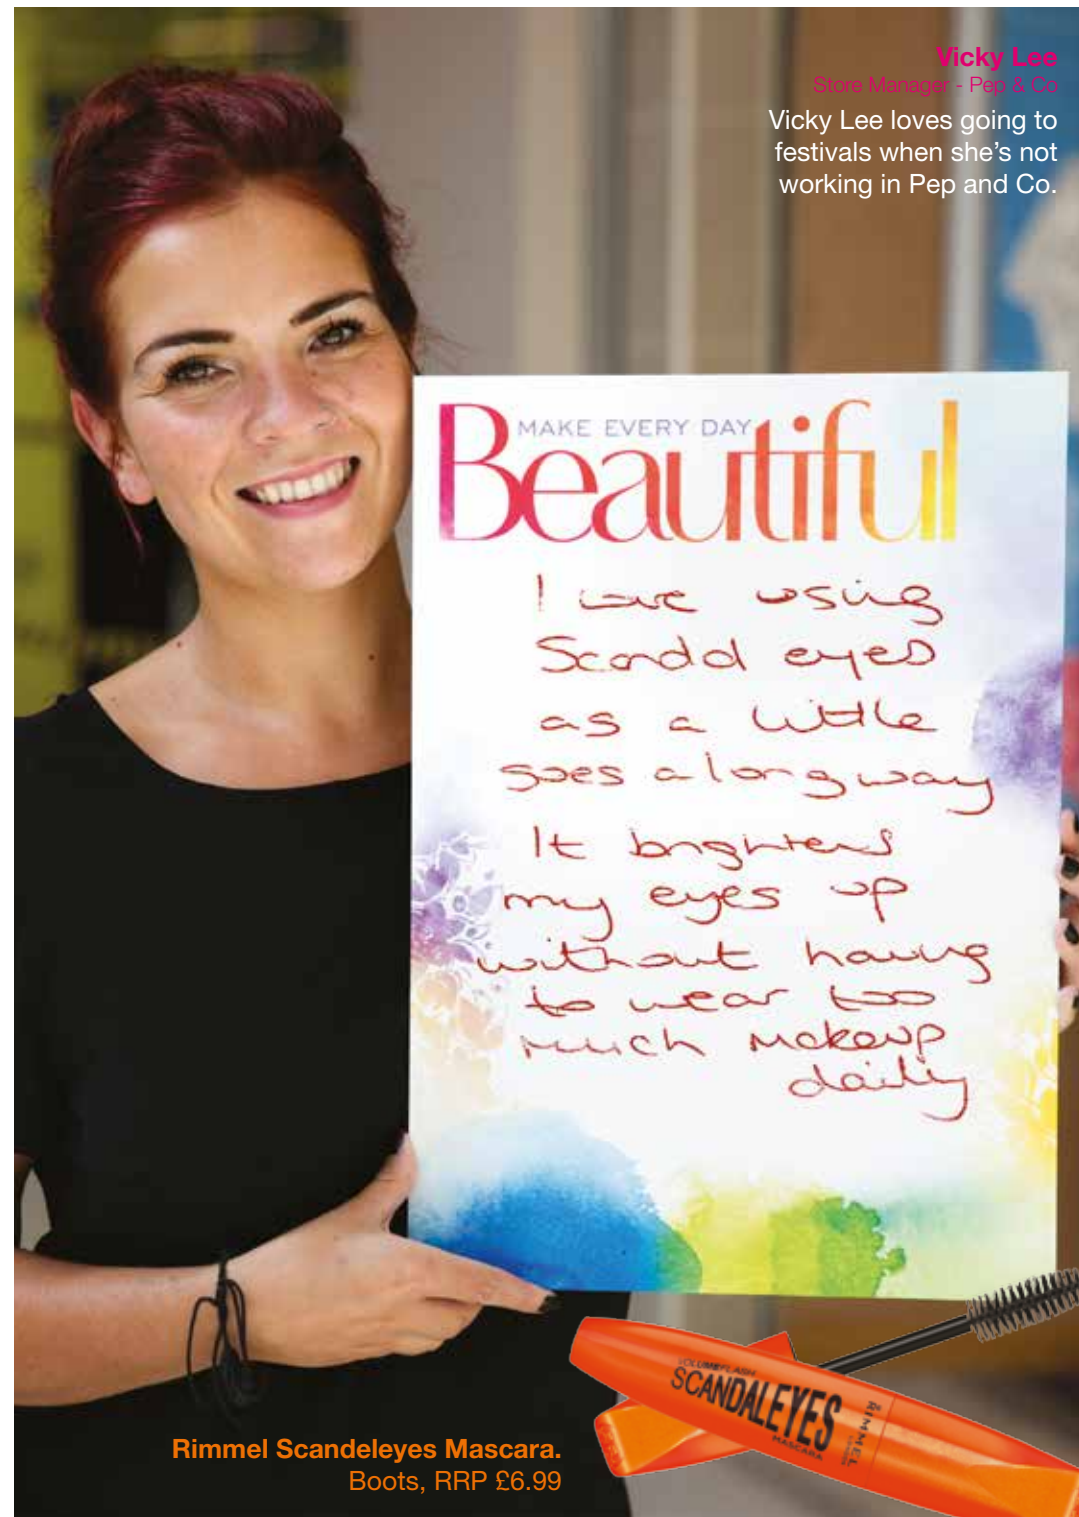 Vicky Lee
Store Manager - Pep & Co
Vicky Lee loves going to
festivals when she's not
working in Pep and Co.
MAKE EVERY DAY
Beautiful
I love using
Scandal eyes
as a little
goes a long way
It brightens
my eyes up
without having
to wear too
much makeup
daily
VOLUMEFLASH
SCANDALEYES
MASCARA
RIMMEL
LONDON
Rimmel Scandeleyes Mascara.
Boots, RRP £6.99